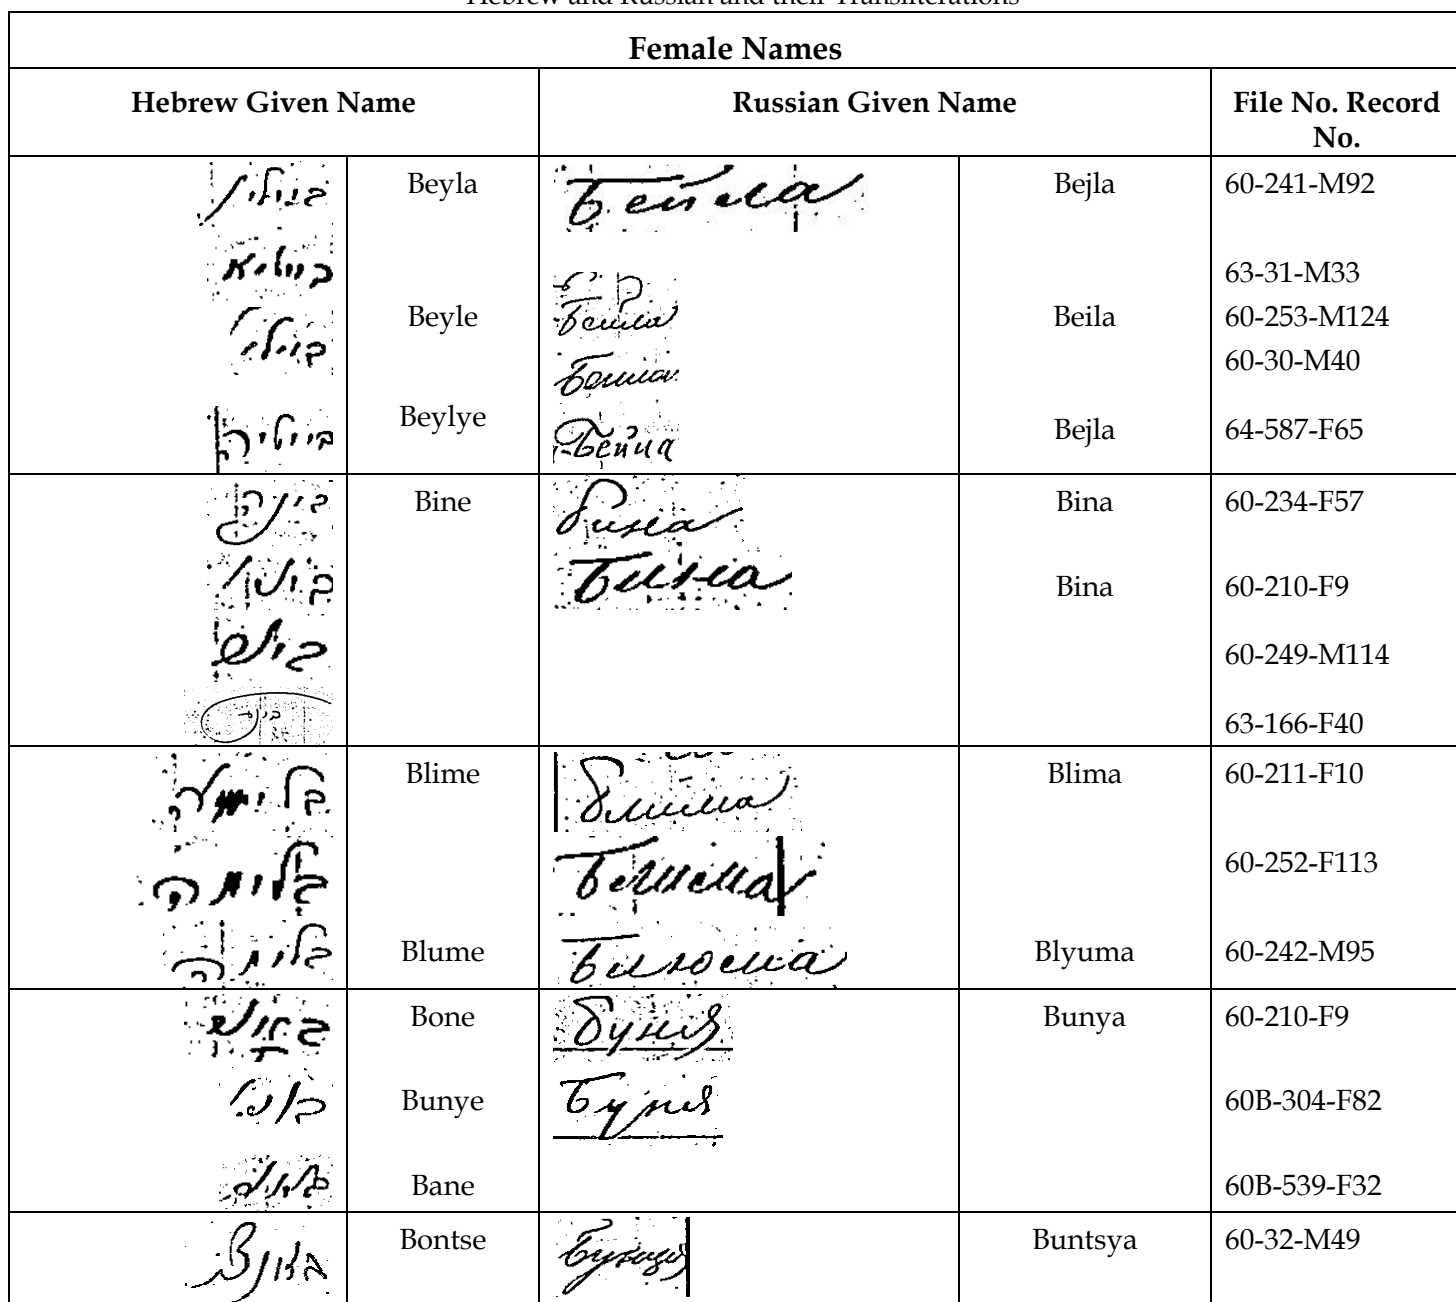 Hebrew and Russian and their Transliterations
Female Names
Hebrew Given Name Russian Given Name File No. Record No.
Beyla Бейла Bejla 60-241-M92
63-31-M33
Beyle Бейла Beila 60-253-M124
Бейла 60-30-M40
Beylye Бейла Bejla 64-587-F65
בינה Bine Бина Bina 60-234-F57
Бина Bina 60-210-F9
60-249-M114
63-166-F40
Blime Блима Blima 60-211-F10
בלימה Блима 60-252-F113
בלומה Blume Блюма Blyuma 60-242-M95
Bone Буня Bunya 60-210-F9
Bunye Буня 60B-304-F82
Bane 60B-539-F32
Bontse Бунця Buntsya 60-32-M49